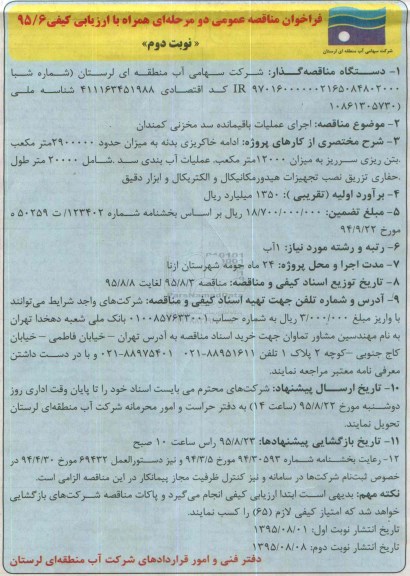 فراخوان مناقصه عمومی دو مرحله‌ای همراه با ارزیابی کیفی ۹۵/۶
« نوبت دوم»
شرکت سهامی آب منطقه ای لرستان
۱- دستگاه مناقصه‌گذار: شرکت سهامی آب منطقه ای لرستان (شماره شبا
IR ۹۷۰۱۶۰۰۰۰۰۰۲۱۶۵۰۸۴۸۰۲۰۰۰ کد اقتصادی ۴۱۱۱۶۳۴۵۱۹۸۸ شناسه ملی
(۱۰۸۶۱۳۰۵۷۳۰
۲- موضوع مناقصه: اجرای عملیات باقیمانده سد مخزنی کمندان
۳- شرح مختصری از کارهای پروژه: ادامه خاکریزی بدنه به میزان حدود ۲۹۰۰۰۰۰متر مکعب
.بتن ریزی سرریز به میزان ۱۲۰۰۰متر مکعب. عملیات آب بندی سد .شامل ۲۰۰۰۰ متر طول
.حفاری تزریق نصب تجهیزات هیدرومکانیکال و الکتریکال و ابزار دقیق
۴- برآورد اولیه (تقریبی ): ۱۳۵۰ میلیارد ریال
۵- مبلغ تضمین: ۱۸/۷۰۰/۰۰۰/۰۰۰ ریال بر اساس بخشنامه شماره ۱۲۳۴۰۲/ت ۵۰۲۵۹ ه
مورخ ۹۴/۹/۲۲
۶- رتبه و رشته مورد نیاز: ۱آب
۷- مدت اجرا و محل پروژه: ۲۴ ماه حومه شهرستان ازنا
۸- تاریخ توزیع اسناد کیفی و مناقصه: مناقصه ۹۵/۸/۳ لغایت ۹۵/۸/۸
۹- آدرس و شماره تلفن جهت تهیه اسناد کیفی و مناقصه: شرکت‌های واجد شرایط می‌توانند
با واریز مبلغ ۳/۰۰۰/۰۰۰ ریال به شماره حساب ۰۱۰۰۸۵۷۶۳۳۰۰۱ بانک ملی شعبه دهخدا تهران
به نام مهندسین مشاور تماوان جهت خرید اسناد مناقصه به آدرس تهران – خیابان فاطمی – خیابان
کاج جنوبی –کوچه ۲ پلاک ۱ تلفن ۸۸۹۵۱۶۱۱-۰۲۱ ۸۸۹۷۵۴۰۱-۰۲۱ و با در دست داشتن
معرفی نامه معتبر مراجعه نمایند.
۱۰- تاریخ ارسال پیشنهاد: شرکت‌های محترم می بایست اسناد خود را تا پایان وقت اداری روز
دوشنبه مورخ ۹۵/۸/۲۳ (ساعت ۱۴) به دفتر حراست و امور محرمانه شرکت آب منطقه‌ای لرستان
تحویل نمایند.
۱۱- تاریخ بازگشایی پیشنهادها: ۹۵/۸/۲۳ راس ساعت ۱۰ صبح
۱۲- رعایت بخشنامه شماره ۹۴/۳۰۵۹۳ مورخ ۹۴/۳/۵ و نیز دستورالعمل ۶۹۴۳۲ مورخ ۹۴/۴/۳۰ در
خصوص ثبت‌نام شرکت‌ها در سامانه و نیز کنترل ظرفیت مجاز پیمانکار در این مناقصه الزامی است.
نکته مهم: بدیهی است ابتدا ارزیابی کیفی انجام می‌گیرد و پاکات مناقصه شرکت‌های بازگشایی
خواهد شد که امتیاز کیفی لازم (۶۵) را کسب نمایند.
تاریخ انتشار نوبت اول: ۱۳۹۵/۰۸/۰۱
تاریخ انتشار نوبت دوم: ۱۳۹۵/۰۸/۰۸
دفتر فنی و امور قراردادهای شرکت آب منطقه‌ای لرستان